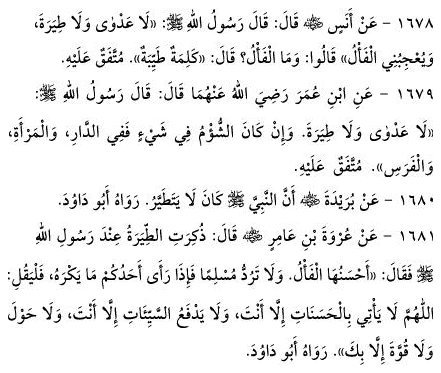 ١٦٧٨ - عَنْ أَنَسٍ ﷺ قَالَ: قَالَ رَسُولُ اللهِ ﷺ: «لَا عَدْوٰى وَلَا طِيَرَةَ،
وَيُعْجِبُنِي الْفَأْلُ» قَالُوا: وَمَا الْفَأْلُ؟ قَالَ: «كَلِمَةٌ طَيِّبَةٌ». مُتَّفَقٌ عَلَيْهِ.
١٦٧٩ - عَنِ ابْنِ عُمَرَ رَضِيَ اللهُ عَنْهُمَا قَالَ: قَالَ رَسُولُ اللهِ ﷺ:
«لَا عَدْوٰى وَلَا طِيَرَةَ. وَإِنْ كَانَ الشُّؤْمُ فِي شَيْءٍ فَفِي الدَّارِ، وَالْمَرْأَةِ،
وَالْفَرَسِ». مُتَّفَقٌ عَلَيْهِ.
١٦٨٠ - عَنْ بُرَيْدَةَ ﷺ أَنَّ النَّبِيَّ ﷺ كَانَ لَا يَتَطَيَّرُ. رَوَاهُ أَبُو دَاوُدَ.
١٦٨١ - عَنْ عُرْوَةَ بْنِ عَامِرٍ ﷺ قَالَ: ذُكِرَتِ الطِّيَرَةُ عِنْدَ رَسُولِ اللهِ
ﷺ فَقَالَ: «أَحْسَنُهَا الْفَأْلُ. وَلَا تَرُدُّ مُسْلِمًا فَإِذَا رَأَى أَحَدُكُمْ مَا يَكْرَهُ، فَلْيَقُلِ:
اللَّهُمَّ لَا يَأْتِي بِالْحَسَنَاتِ إِلَّا أَنْتَ، وَلَا يَدْفَعُ السَّيِّئَاتِ إِلَّا أَنْتَ، وَلَا حَوْلَ
وَلَا قُوَّةَ إِلَّا بِكَ». رَوَاهُ أَبُو دَاوُدَ.